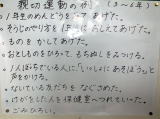 親切運動の例 (3~6年)
・1年生のめんどうをみてあげた。
・そうじのやり方をていねいに教えてあげた。
・ものをかしてあげた。
・おとしものをひろって、もちぬしをみつける。
・1人ぼっちでいる人に「いっしょにあそぼう」と
声をかける。
・ないている友だちをなぐさめた。
・けがをした人を保健室へつれていった。
・ごみひろい。